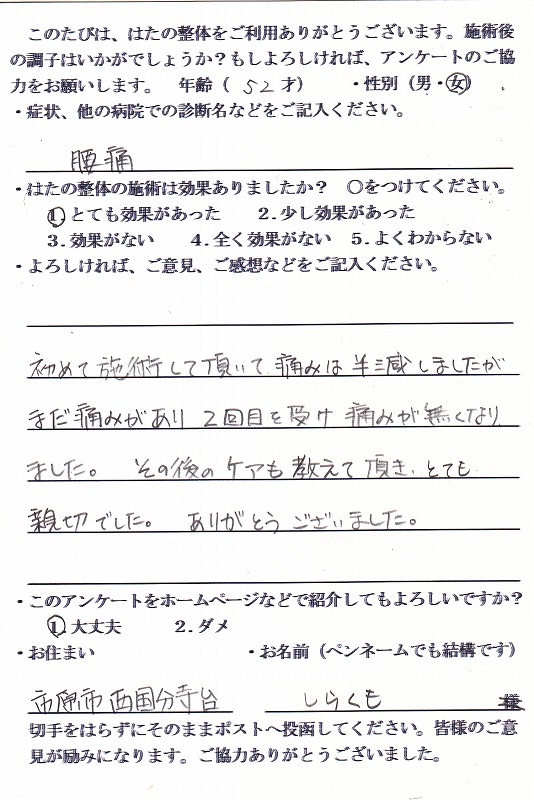 このたびは、はたの整体をご利用ありがとうございます。施術後
の調子はいかがでしょうか？もしよろしければ、アンケートのご協
力をお願いします。　年齢（ 52 才）　・性別（男・女）
・症状、他の病院での診断名などをご記入ください。
腰痛
・はたの整体の施術は効果ありましたか？　〇をつけてください。
１.とても効果があった　２.少し効果があった
３.効果がない　４.全く効果がない　５.よくわからない
・よろしければ、ご意見、ご感想などをご記入ください。
初めて施術して頂いて、痛みは半減しましたが
まだ痛みがあり ２回目を受け 痛みが無くなり
ました。 その後のケアも教えて頂き、とても
親切でした。 ありがとうございました。
・このアンケートをホームページなどで紹介してもよろしいですか？
１.大丈夫　２.ダメ
・お住まい　・お名前（ペンネームでも結構です）
市原市西国分寺台　しらくも　様
切手をはらずにそのままポストへ投函してください。皆様のご意
見が励みになります。ご協力ありがとうございました。